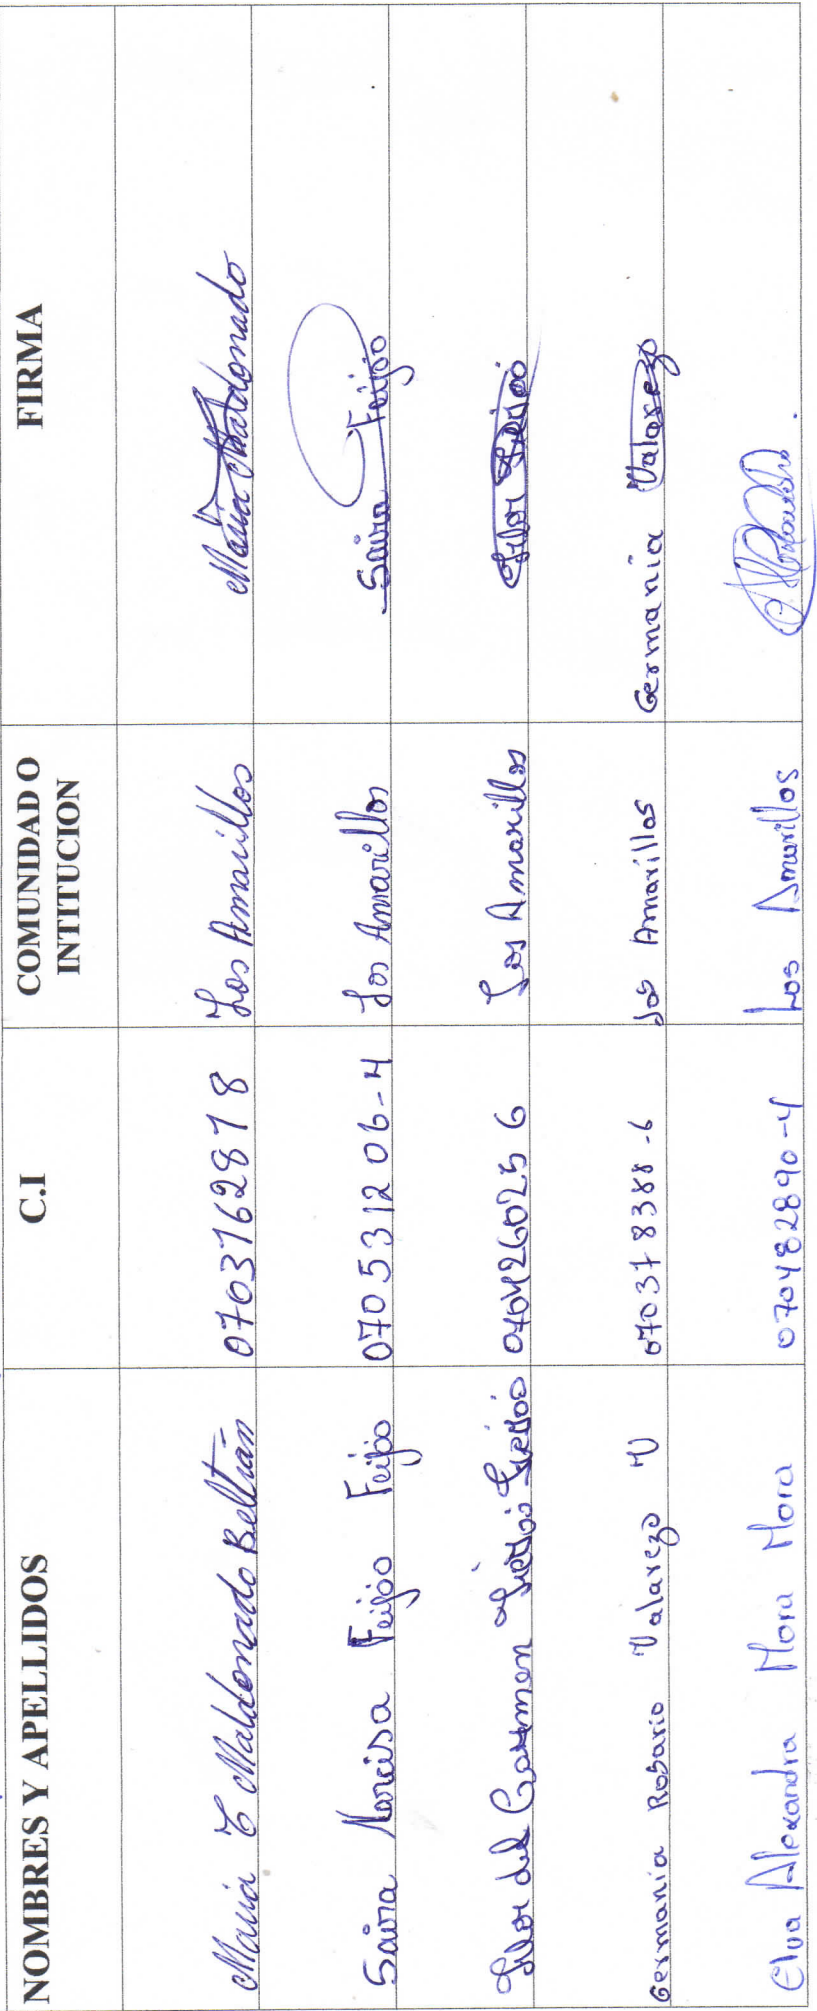 NOMBRES Y APELLIDOS C.I COMUNIDAD O INTITUCION FIRMA
Maria T Maldonado Beltrán 0703762878 Los Amarillos Maria Maldonado
Saira Narcisa Feijóo Feijóo 070531206-4 Los Amarillos Saira Feijóo
Flor del Carmen Feijoó Feijoó 0704260256 Los Amarillos Flor Feijoó
Germania Rosario Valarezo V 070378388-6 Los Amarillos Germania Valarezo
Elva Alexandra Mora Mora 070482890-4 Los Amarillos